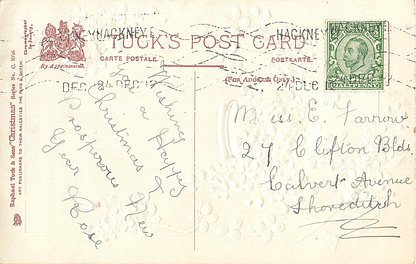 HACKNEY
HACKNEY
TUCK'S POST CARD
CARTE POSTALE.
POSTKARTE.
By Appointment.
(For Address Only.)
DEC
24 DEC
HALFPENNY
Raphael Tuck & Sons' "Christmas" Series No. C.
ART PUBLISHERS TO THEIR MAJESTIES THE KING & QUEEN.
Wishing
you a Happy
Christmas &
Prosperous New
Year
Rose
Miss E. Farrow
27 Clifton Blds
Calvert Avenue
Shoreditch